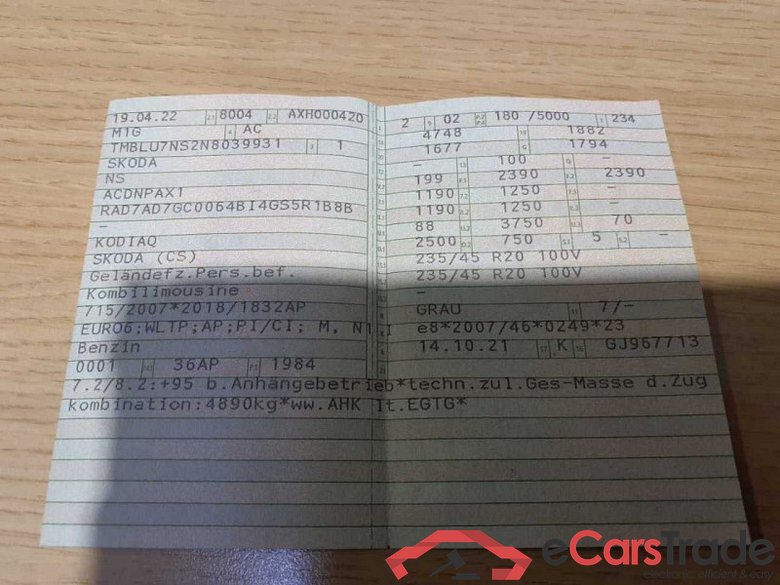 19.04.22 8004 AXH000420
M1G AC
TMBLU7NS2N8039931 1
SKODA
NS
ACDNPAX1
RAD7AD7GC0064BI4GS5R1B8B
–
KODIAQ
SKODA (CS)
Geländefz.Pers.bef.
Kombilimousine
715/2007*2018/1832AP
EURO6;WLTP;AP;PI/CI; M, N1 I
Benzin
0001 36AP 1984
2 02 180 /5000 234
4748 1882
1677 1794
– 100 –
199 2390 2390
1190 1250 –
1190 1250 –
88 3750 70
2500 750 5 –
235/45 R20 100V
235/45 R20 100V
–
GRAU 7/–
e8*2007/46*0249*23
14.10.21 K GJ967713
7.2/8.2:+95 b.Anhängebetrieb*techn.zul.Ges-Masse d.Zug
kombination:4890kg*ww.AHK lt.EGTG*
eCarsTrade